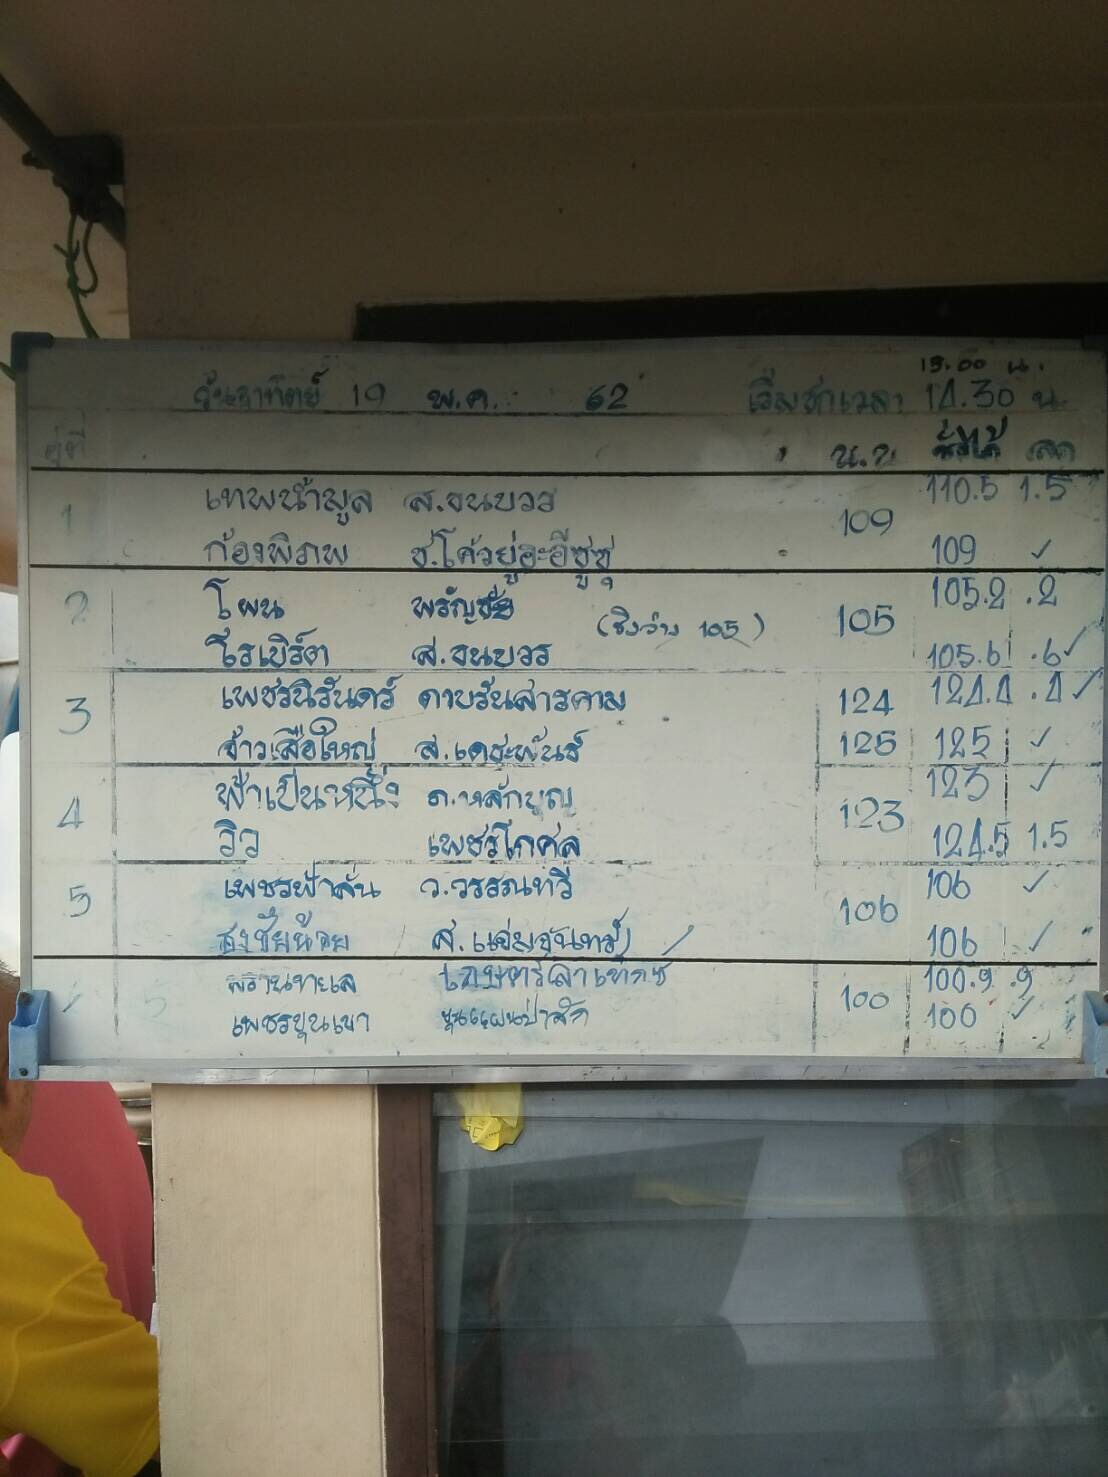 15.00 น.
วันอาทิตย์ 19 พ.ค. 62 เริ่มชกเวลา 14.30 น.
คู่ที่ น.น. ชั่งได้ ลด
1 เทพน้ำมูล ส.จนบวร 109 110.5 1.5
ก้องพิภพ ช.โค้วยู่ฮะอีซูซุ 109 ✓
2 โผน พรัญชัย 105 105.2 .2
(ชิงว่าง 105)
โรเบิร์ต ส.จนบวร 105.6 .6 ✓
3 เพชรนิรันดร์ ดาบรันสารคาม 124 124.4 .4 ✓
จ้าวเสือใหญ่ ส.เดชะพันธ์ 125 125 ✓
4 ฟ้าเป็นหนึ่ง ภ.หลักบุญ 123 123 ✓
วิว เพชรโกศล 124.5 1.5
5 เพชรฟ้าลั่น ว.วรรณทวี 106 106 ✓
ธงชัยน้อย ส.แจ่มจันทร์ 106 ✓
พรานทะเล 100 100.9 .9
เพชรขุนเขา ขุนแผนป่าสัก 100 ✓